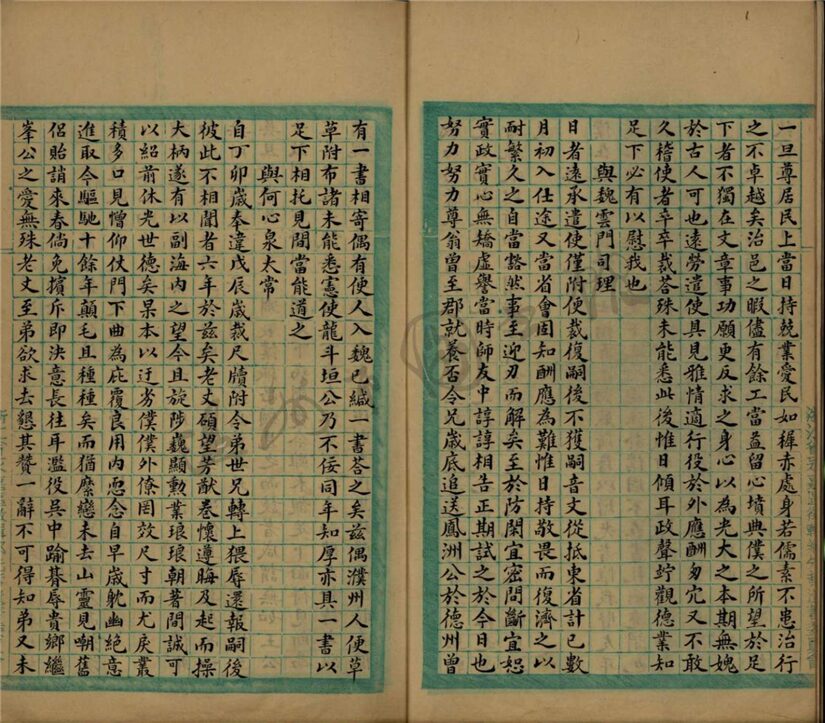 一旦尊居民上當日持兢業愛民如穉赤處身若儒素不患治行
之不卓越矣治邑之暇儘有餘工當益留心墳典僕之所望於足
下者不獨在文章事功願更反求之身心以為光大之本期無媿
於古人可也遠勞遣使具見雅情適行役於外應酬匆冗又不敢
久稽使者卒卒裁荅殊未能悉此後惟日傾耳政聲竚觀德業知
足下必有以慰我也
與魏雲門司理
日者遠承遣使僅附便裁復嗣後不獲嗣音丈從抵東省計已數
月初入仕途又當省會固知酬應為難惟日持敬畏而復濟之以
耐繁久之自當豁然事至迎刃而解矣至於防閑宜密問斷宜恕
實政實心無矯虛譽當時師友中諄諄相告正期試之於今日也
努力努力尊翁曾至郡就養否令兄歲底追送鳳洲公於德州曾
有一書相寄偶有便人入魏已緘一書荅之矣茲偶濮州人便草
草附布諸未能悉憲使龍斗垣公乃不佞同年知厚亦具一書以
足下相托見間當能道之
與何心泉太常
自丁卯歲奉違戊辰歲裁尺牘附令弟世兄轉上猥辱還報嗣後
彼此不相聞者六年於茲矣老丈碩望芳猷卷懷遵晦及起而操
大柄遂有以副海內之望今且旋陟巍顯勳業琅琅朝著間誠可
以紹前休光世德矣杲本以迂劣僕僕外僚罔效尺寸而尤戾叢
積多口見憎仰仗門下曲為庇覆良用內恧念自早歲躭幽絕意
進取今驅馳十餘年顛毛且種種矣而猶縻戀未去山靈見嘲舊
侶貽誚來春倘免擯斥即決意長往耳濫役吳中踰朞辱貴鄉繼
峯公之愛無殊老丈至弟欲求去懇其贊一辭不可得知弟又未